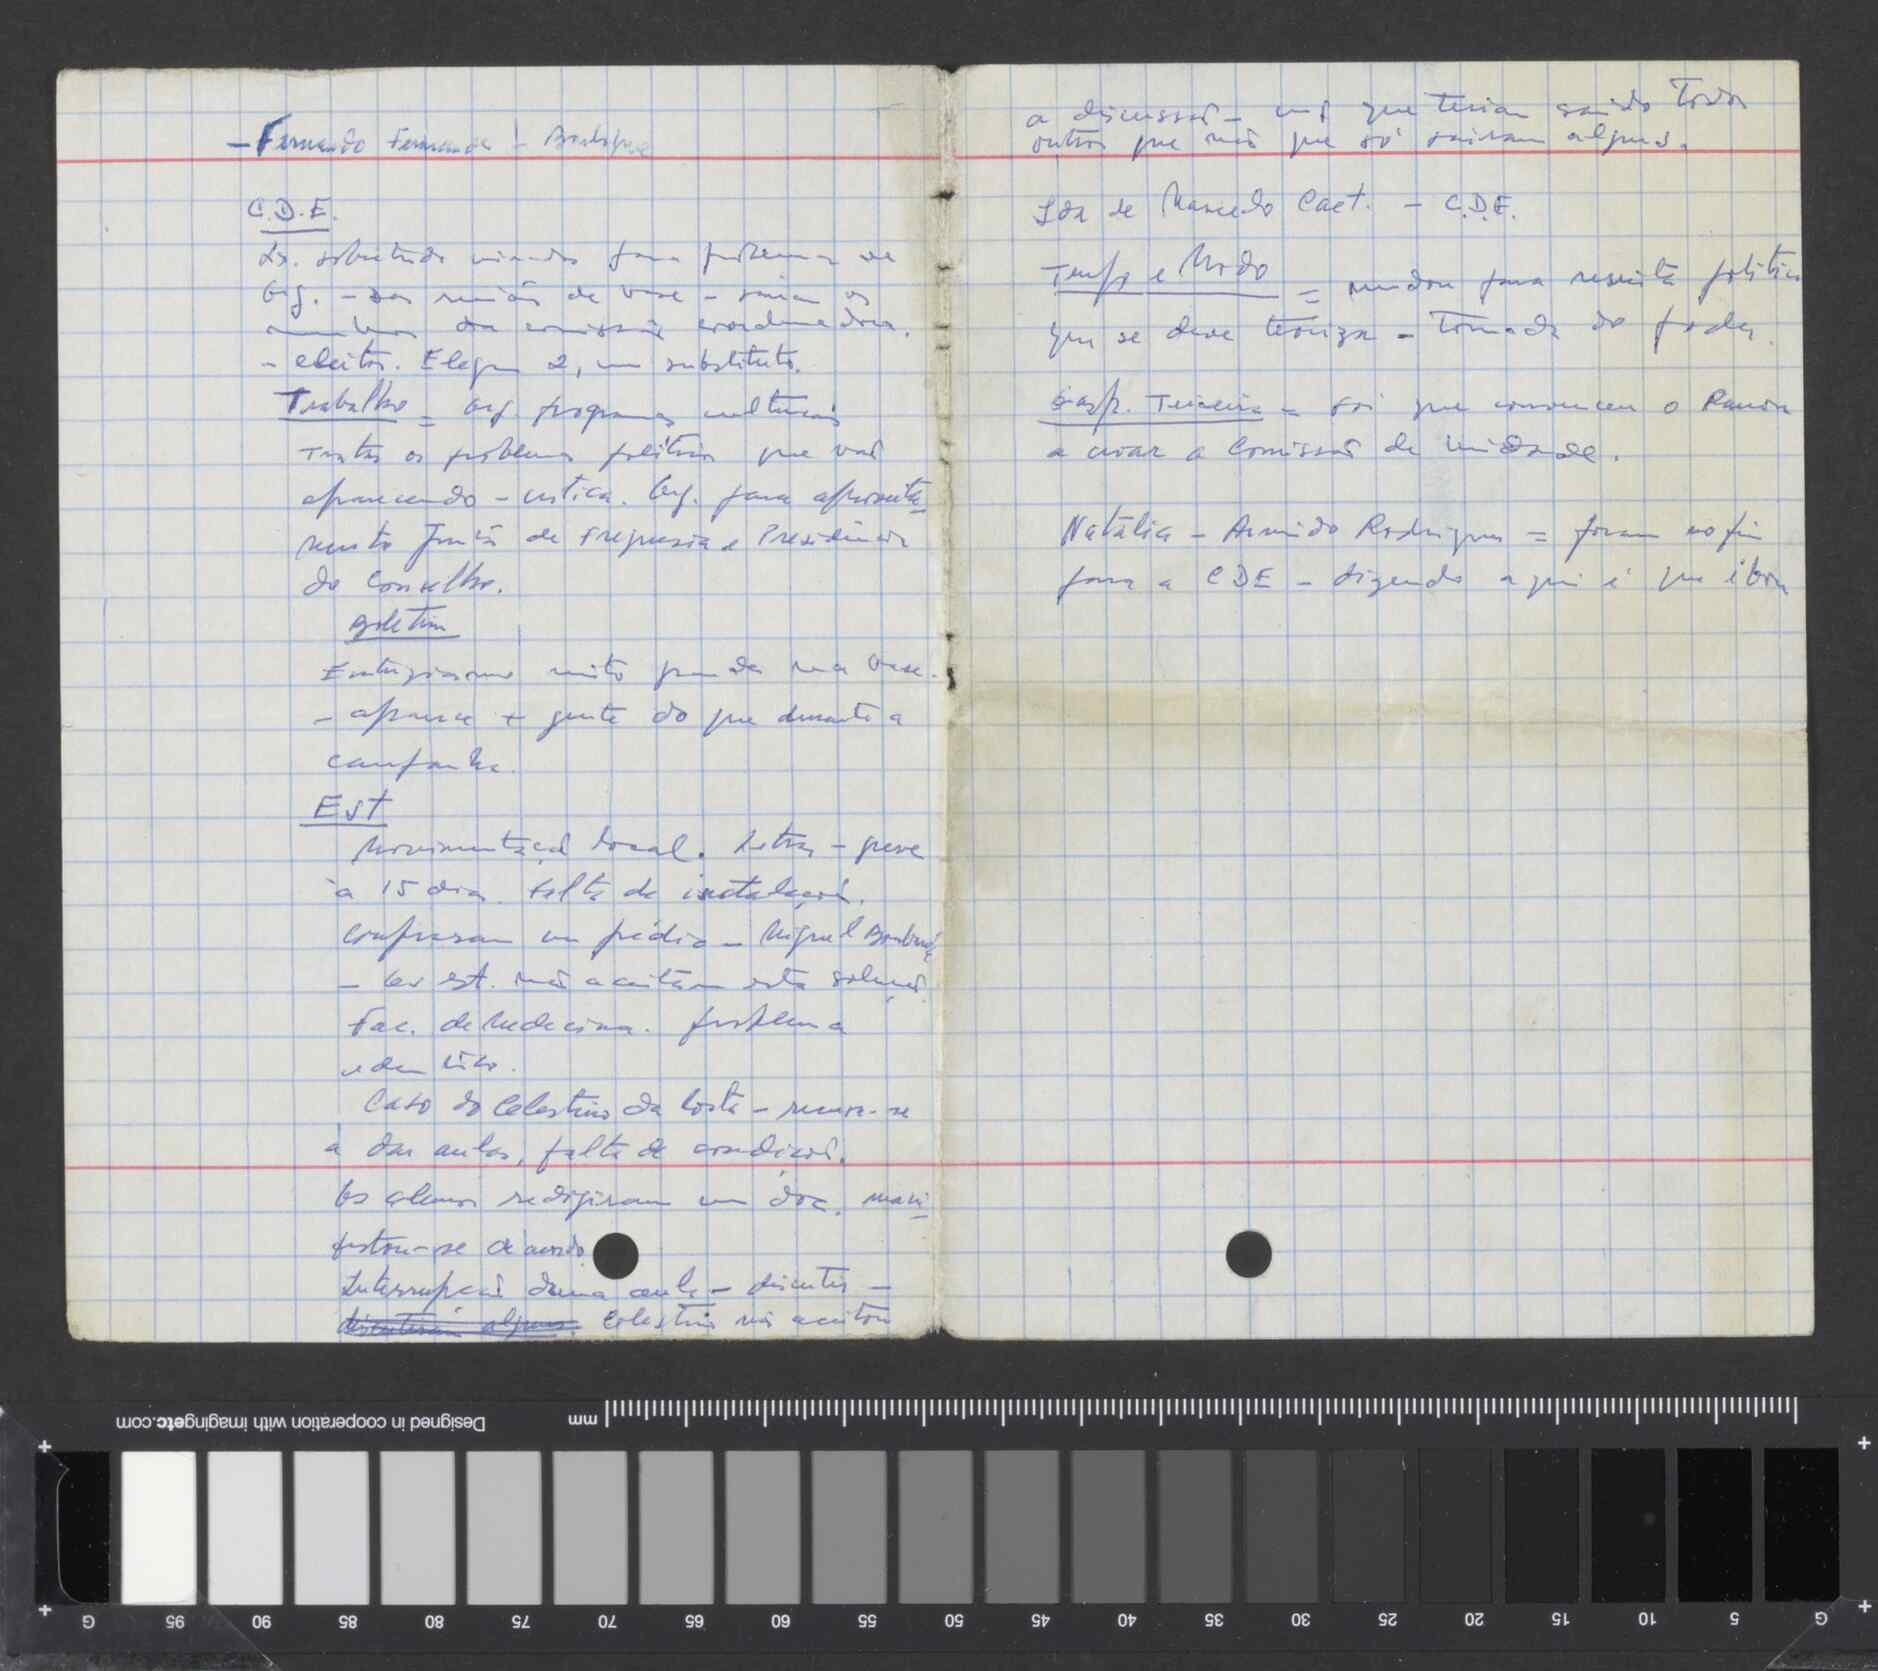 - Fernando Fernandes -
C.D.E.
Lx. sobretudo virados para problemas de
Org. - Das reuniões de base - saiam os
membros da comissão coordenadora.
- eleitos. Elegem 2, um substituto.
Trabalho = Org. programas culturais
Tratar os problemas políticos que vão
aparecendo - critica. Org. para apresenta-
mento Junta de Freguesia e Presidência
do Conselho.
Boletim
Entusiasmo muito grande na base.
- aparece + gente do que durante a
campanha.
Est
Movimentação local. Letras - greve
à 15 dias. falta de instalações.
Compraram um prédio - Miguel Bombarda
- Os est. não aceitam esta solução.
Fac. de Medicina. problema
identico.
Caso do Celestino da Costa - recusa-se
a dar aulas, falta de condições.
Os alunos redigiram um doc. mani-
festou-se de acordo
Interrupção duma aula - discutir -
discutiram alguns. Celestino não aceitou
a discussão - uns que teriam saido Todos
outros que não que só sairam alguns.
Isa de Macedo Caet. - C.D.E.
Tempo e Modo = mudou para revista politica
que se deve teorizar - Tomada do poder.
Gasp. Teixeira = foi que convenceu o Ramon
a criar a Comissão de Unidade.
Natália - Armindo Rodrigues = foram no fim
para a CDE - dizendo aqui é que é bom
G 95 90 85 80 75 70 65 60 55 50 45 40 35 30 25 20 15 10 5 G
mm
Designed in cooperation with imagingetc.com